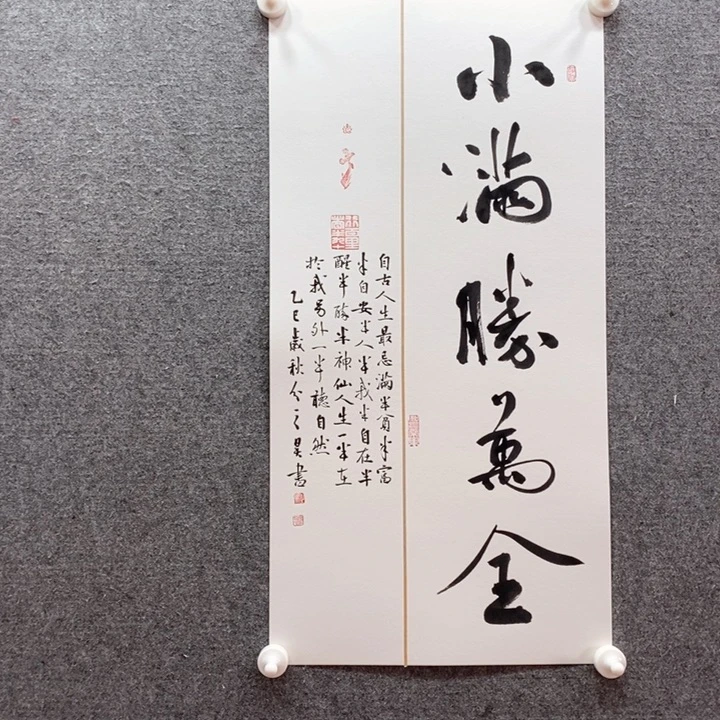 小滿勝萬全
自古人生最忌滿半貧半富
半自安半人半我半自在半
醒半醉半神仙人生一半在
於我另外一半聽自然
乙巳歲秋 昊書